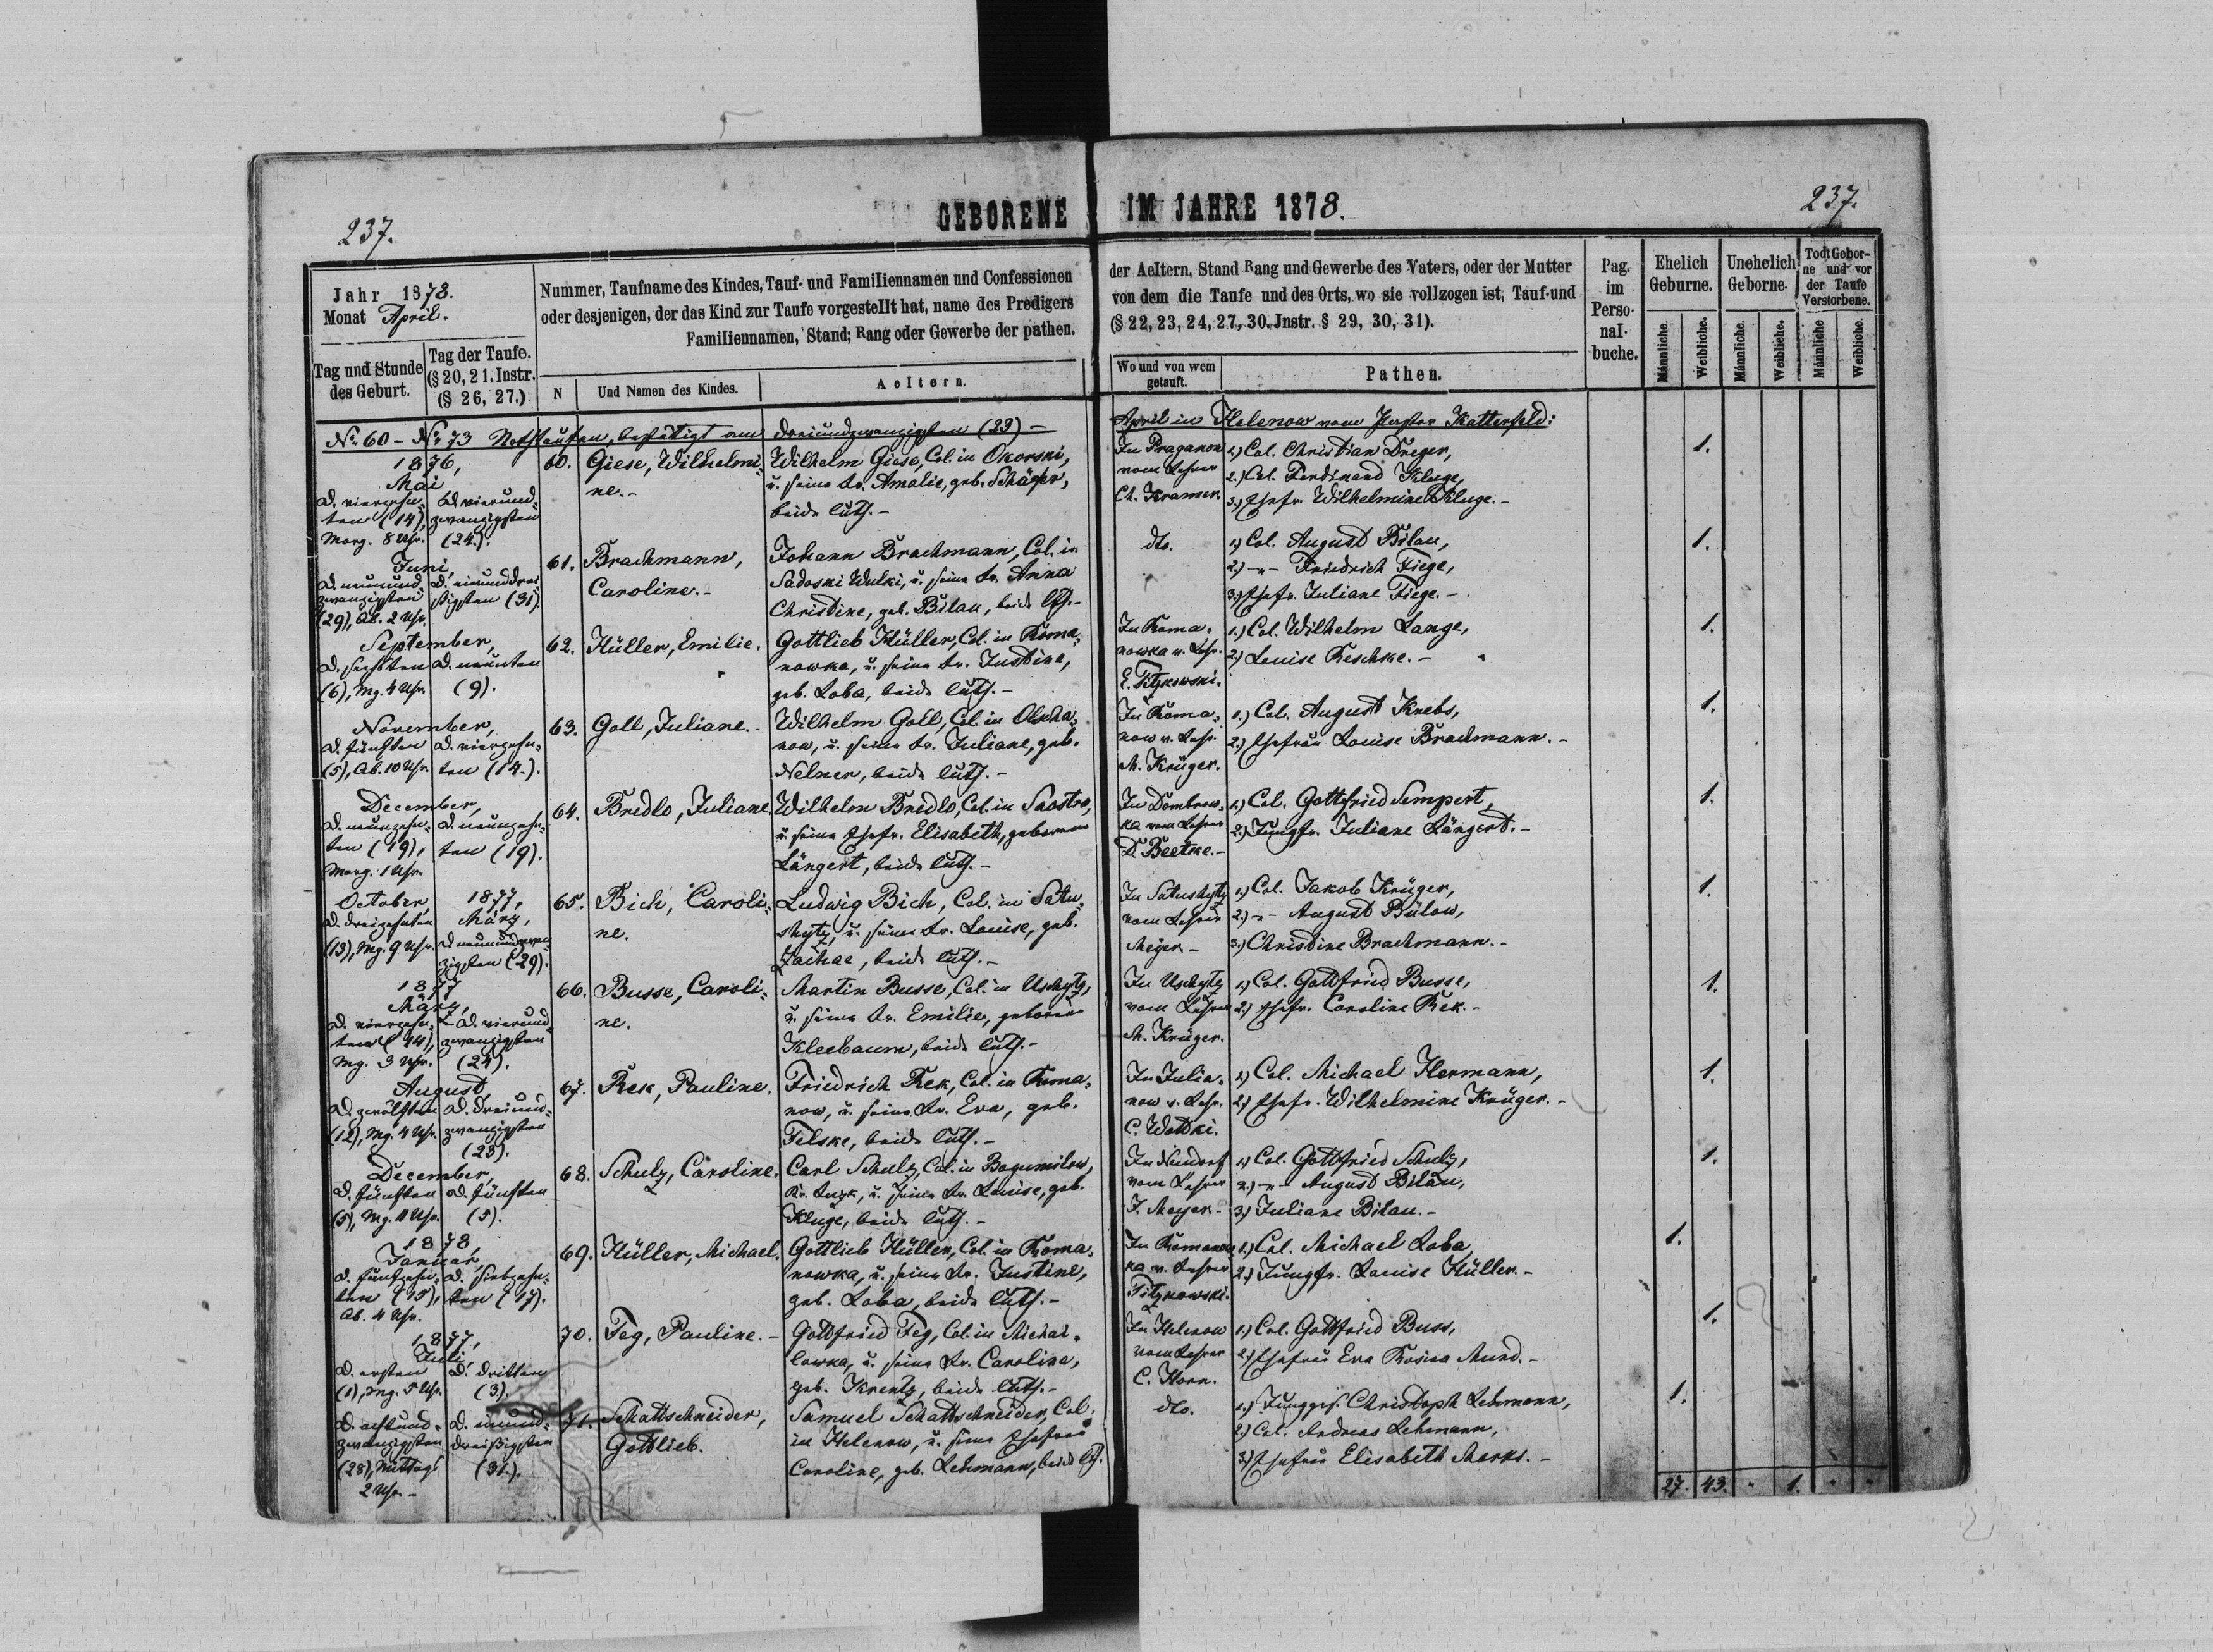 237.
GEBORENE IM JAHRE 1878.
237.
Jahr 1878.
Monat April.
Tag und Stunde
des Geburt.
Tag der Taufe.
(§ 20, 21. Instr.
(§ 26, 27.)
Nummer, Taufname des Kindes, Tauf- und Familiennamen und Confessionen
oder desjenigen, der das Kind zur Taufe vorgestellt hat, name des Predigers
Familiennamen, Stand; Rang oder Gewerbe der pathen.
N
Und Namen des Kindes.
Aeltern.
der Aeltern, Stand Rang und Gewerbe des Vaters, oder der Mutter
von dem die Taufe und des Orts, wo sie vollzogen ist, Tauf-und
(§ 22, 23, 24, 27, 30. Jnstr. § 29, 30, 31).
Wo und von wem
getauft.
Pathen.
Pag.
im
Perso-
nal-
buche.
Ehelich
Geburne.
Unehelich
Geborne.
Todt Gebor-
ne und vor
der Taufe
Verstorbene.
Männliche.
Weibliche.
Männliche.
Weibliche.
Männliche
Weibliche.
No 60 – No 73 Nothtaufen, bestätigt am dreiundzwanzigsten (23) – April in Helenow vom Pastor Katterfeld:
1876,
Mai
d. vierzehn-
ten (14),
Morg. 8 Uhr.
d. vierund-
zwanzigsten
(24.).
60.
Giese, Wilhelmi-
ne.-
Wilhelm Giese, Col. in Okorski,
u. seine Fr. Amalie, geb. Schäfer,
beide luth.-
In Praganow
vom Lehrer
Ch. Kramer.
1.) Col. Christian Dreger,
2.) Col. Ferdinand Kluge,
3.) Ehefr. Wilhelmine Kluge.-
1.
Juni,
d. neunund
zwanzigsten
(29), Ab. 2 Uhr.
d. einunddrei
ßigsten (31).
61.
Brachmann,
Caroline.-
Johann Brachmann, Col. in
Sadoski Wulki, u. seine Fr. Anna
Christine, geb. Bilau, beide lth.-
dto.
1.) Col. August Bilau,
2.) -"- Friedrich Fiege,
3.) Ehefr. Juliane Fiege.-
1.
September,
d. sechsten
(6), Mg. 4 Uhr.
d. neunten
(9).
62.
Hüller, Emilie.
Gottlieb Hüller, Col. in Roma-
nowka, u. seine Fr. Justine,
geb. Loba, beide luth.-
In Roma-
nowka v. Lehr.
E. Titzkowski.
1.) Col. Wilhelm Lange,
2.) Louise Reschke.-
1.
November,
d. fünften
(5), Ab. 10 Uhr.
d. vierzehn-
ten (14.).
63.
Goll, Juliane.-
Wilhelm Goll, Col. in Olscha-
now, u. seine Fr. Juliane, geb.
Nelner, beide luth.-
In Roma-
now v. Lehr.
M. Krüger.
1.) Col. August Krebs,
2.) Ehefrau Louise Brachmann.-
1.
December,
d. neunzehn-
ten (19),
Morg. 1 Uhr.
d. neunzehn-
ten (19).
64.
Bredlo, Juliane
Wilhelm Bredlo, Col. in
u. seine Ehefr. Elisabeth, geborene
Längert, beide luth.-
In Dombrow-
ka vom Lehrer
D. Beetke.-
1.) Col. Gottfried Sempert,
2.) Jungfr. Juliane Längert.-
1.
October,
d. dreizehnten
(13), Mg. 9 Uhr.
1877,
März,
d. neunundzwan
zigsten (29).
65.
Bich, Caroli-
ne.
Ludwig Bich, Col. in Satu-
shytz, u. seine Fr. Louise, geb.
beide luth.-
In Satushytz
vom Lehrer
Meyer-
1.) Col. Jakob Krüger,
2.) -"- August Bülow,
3.) Christine Brachmann.-
1.
1877
März,
d. vierzehn-
ten (14),
Mg. 3 Uhr.
d. vierund-
zwanzigsten
(24).
66.
Busse, Caroli-
ne.
Martin Busse, Col. in Uschytz,
u. seine Fr. Emilie, geborene
Kleebaum, beide luth.-
In Uschytz
vom Lehrer
M. Krüger.
1.) Col. Gottfried Busse,
2.) Ehefr. Caroline Rek.-
1.
August,
d. zwölften
(12), Mg. 4 Uhr.
d. dreiund-
zwanzigsten
(23).
67.
Rek, Pauline.
Friedrich Rek, Col. in Roma-
now, u. seine Fr. Eva, geb.
Felske, beide luth.-
In Julia-
now v. Lehr.
C. Wottki.
1.) Col. Michael Hermann,
2.) Ehefr. Wilhelmine Krüger.-
1.
December,
d. fünften
(5), Mg. 11 Uhr.
d. fünften
(5).
68.
Schulz, Caroline.
Carl Schulz, Col. in Bogumilow,
Kr. Luzk, u. seine Fr. Louise, geb.
Kluge, beide luth.-
In Neudorf
vom Lehrer
J. Meyer-
1.) Col. Gottfried Schulz,
2.) -"- August Bilau,
3.) Juliane Bilau.-
1.
1878
Januar,
d. fünfzehn-
ten (15),
Ab. 11 Uhr.
d. siebzehn-
ten (17).
69.
Hüller, Michael.
Gottlieb Hüller, Col. in Roma-
nowka, u. seine Fr. Justine,
geb. Loba, beide luth.-
In Romanow-
ka v. Lehrer
Titzkowski.
1.) Col. Michael Loba,
2.) Jungfr. Louise Hüller.-
1.
1877,
Juli
d. ersten
(1), Mg. 5 Uhr.
d. dritten
(3).
70.
Feg, Pauline.-
Gottfried Feg, Col. in Michai-
lowka, u. seine Fr. Caroline,
geb. Krentz, beide luth.-
In Helenow
vom Lehrer
C. Horn.
1.) Col. Gottfried Buss,
2.) Ehefrau Eva Rosina Mund.-
1.
d. achtund-
zwanzigsten
(28), Mittags
2 Uhr.-
d. einund-
dreißigsten
(31.).
71.
Schattschneider,
Gottlieb.
Samuel Schattschneider, Col.
in Helenow, u. seine Ehefrau
Caroline, geb. Lehmann, beide lth.
dto.
1.) Junggs. Christoph Lehmann,
2.) Col. Andreas Lehmann,
3.) Ehefrau Elisabeth Marks.-
1.
27. 43. " 1. " "